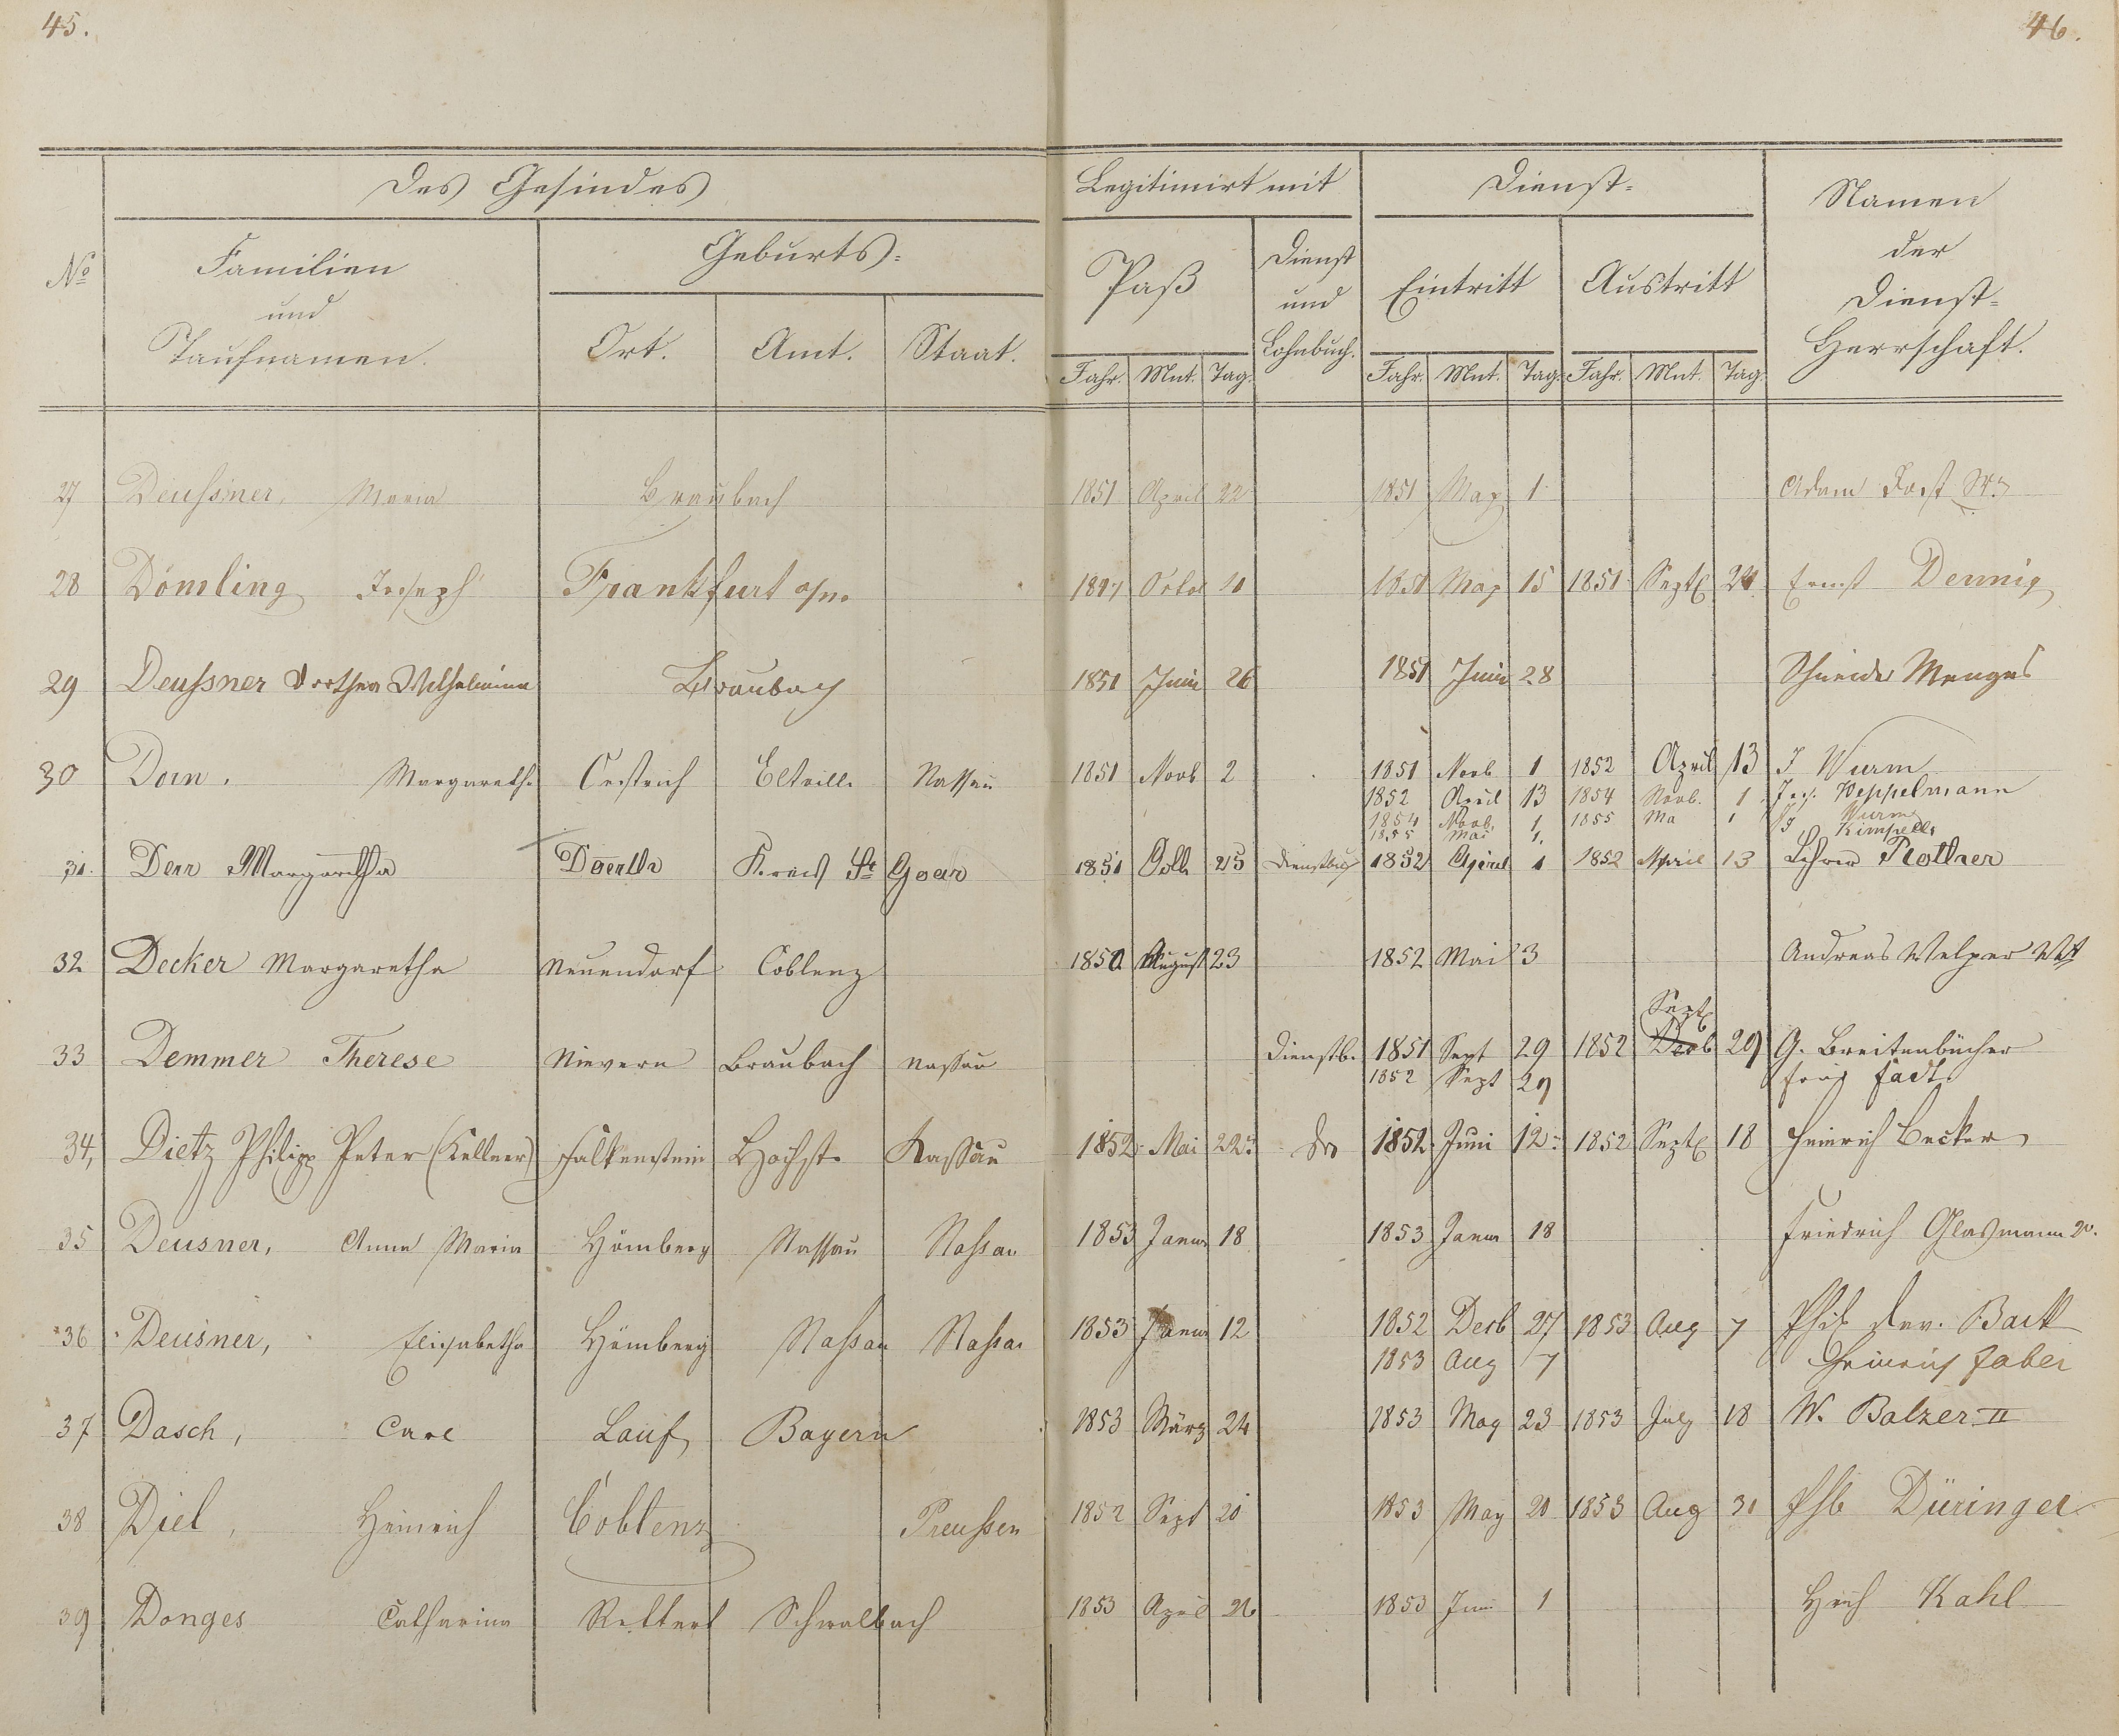 45.
46.
Des Gesindes
Legitimirt mit
Dienst-
Namen der Dienst-Herrschaft.
No
Familien und Taufnamen.
Geburts-
Ort. Amt. Staat.
Paß
Dienst und Lohnbuch.
Eintritt
Austritt
Jahr. Mnt. Tag. Jahr. Mnt. Tag. Jahr. Mnt. Tag.
27 Deussner, Maria Braubach 1851 April 22 1851 May 1 Adam
28 Dömling Joseph Frankfurt a/m 1847 Octob 1851 May 15 1851 Septb 24 Ernst Dennig
29 Deussner Dorthea Wilhelmina Braubach 1851 Juni 26 1851 Juni 28 Schneider Menges
30 Dorn, Margaretha Oestrich Eltville Nassau 1851 Novb 2 1851 Novb 1 1852 April 13 J Wurm
1852 April 13 1854 Novb. 1 Jos. Weppelmann
1854 Novb. 1 1855 Ma 1 J Wurm
1855 Mai 1. Kimpel
31. Derr Margaretha Kreis St Goar 1851 25 Dienstbuch 1852 April 1 1852 April 13 Lehrer Rottner
32 Decker Margaretha Neuendorf Coblenz 1850 August 23 1852 Mai 3 Andreas Welper Wtt
33 Demmer Therese Nievern Braubach Nassau Dienstb. 1851 Sept 29 1852 Decb Septb 29 G. Breitenbücher
1852 Sept 29 Fach
34, Dietz Philipp Peter (Kellner) Falkenstein Höchst Nassau 1852 Mai 22 do 1852 Juni 12 1852 Septb 18 Heinrich Becker
35 Deusner, Anna Maria Hömberg Nassau Nassau 1853 Janur 18 1853 Janur 18 Friedrich Glasmann
36 Deusner, Elisabetha Hömberg Nassau Nassau 1853 Janur 12 1852 Decb 27 1853 Aug 7 Phil Back
1853 Aug 7 Heinrich Faber
37 Dasch, Carl Lauf Bayern 1853 März 24 1853 May 23 1853 July 18 W. Balzer II
38 Diel, Heinrich Coblenz Preussen 1852 Sept 20 1853 May 20 1853 Aug 31 Phb Düringer
39 Donges Catharina Rettert Schwalbach 1853 April 26 1853 Juni 1 Hrch Kahl